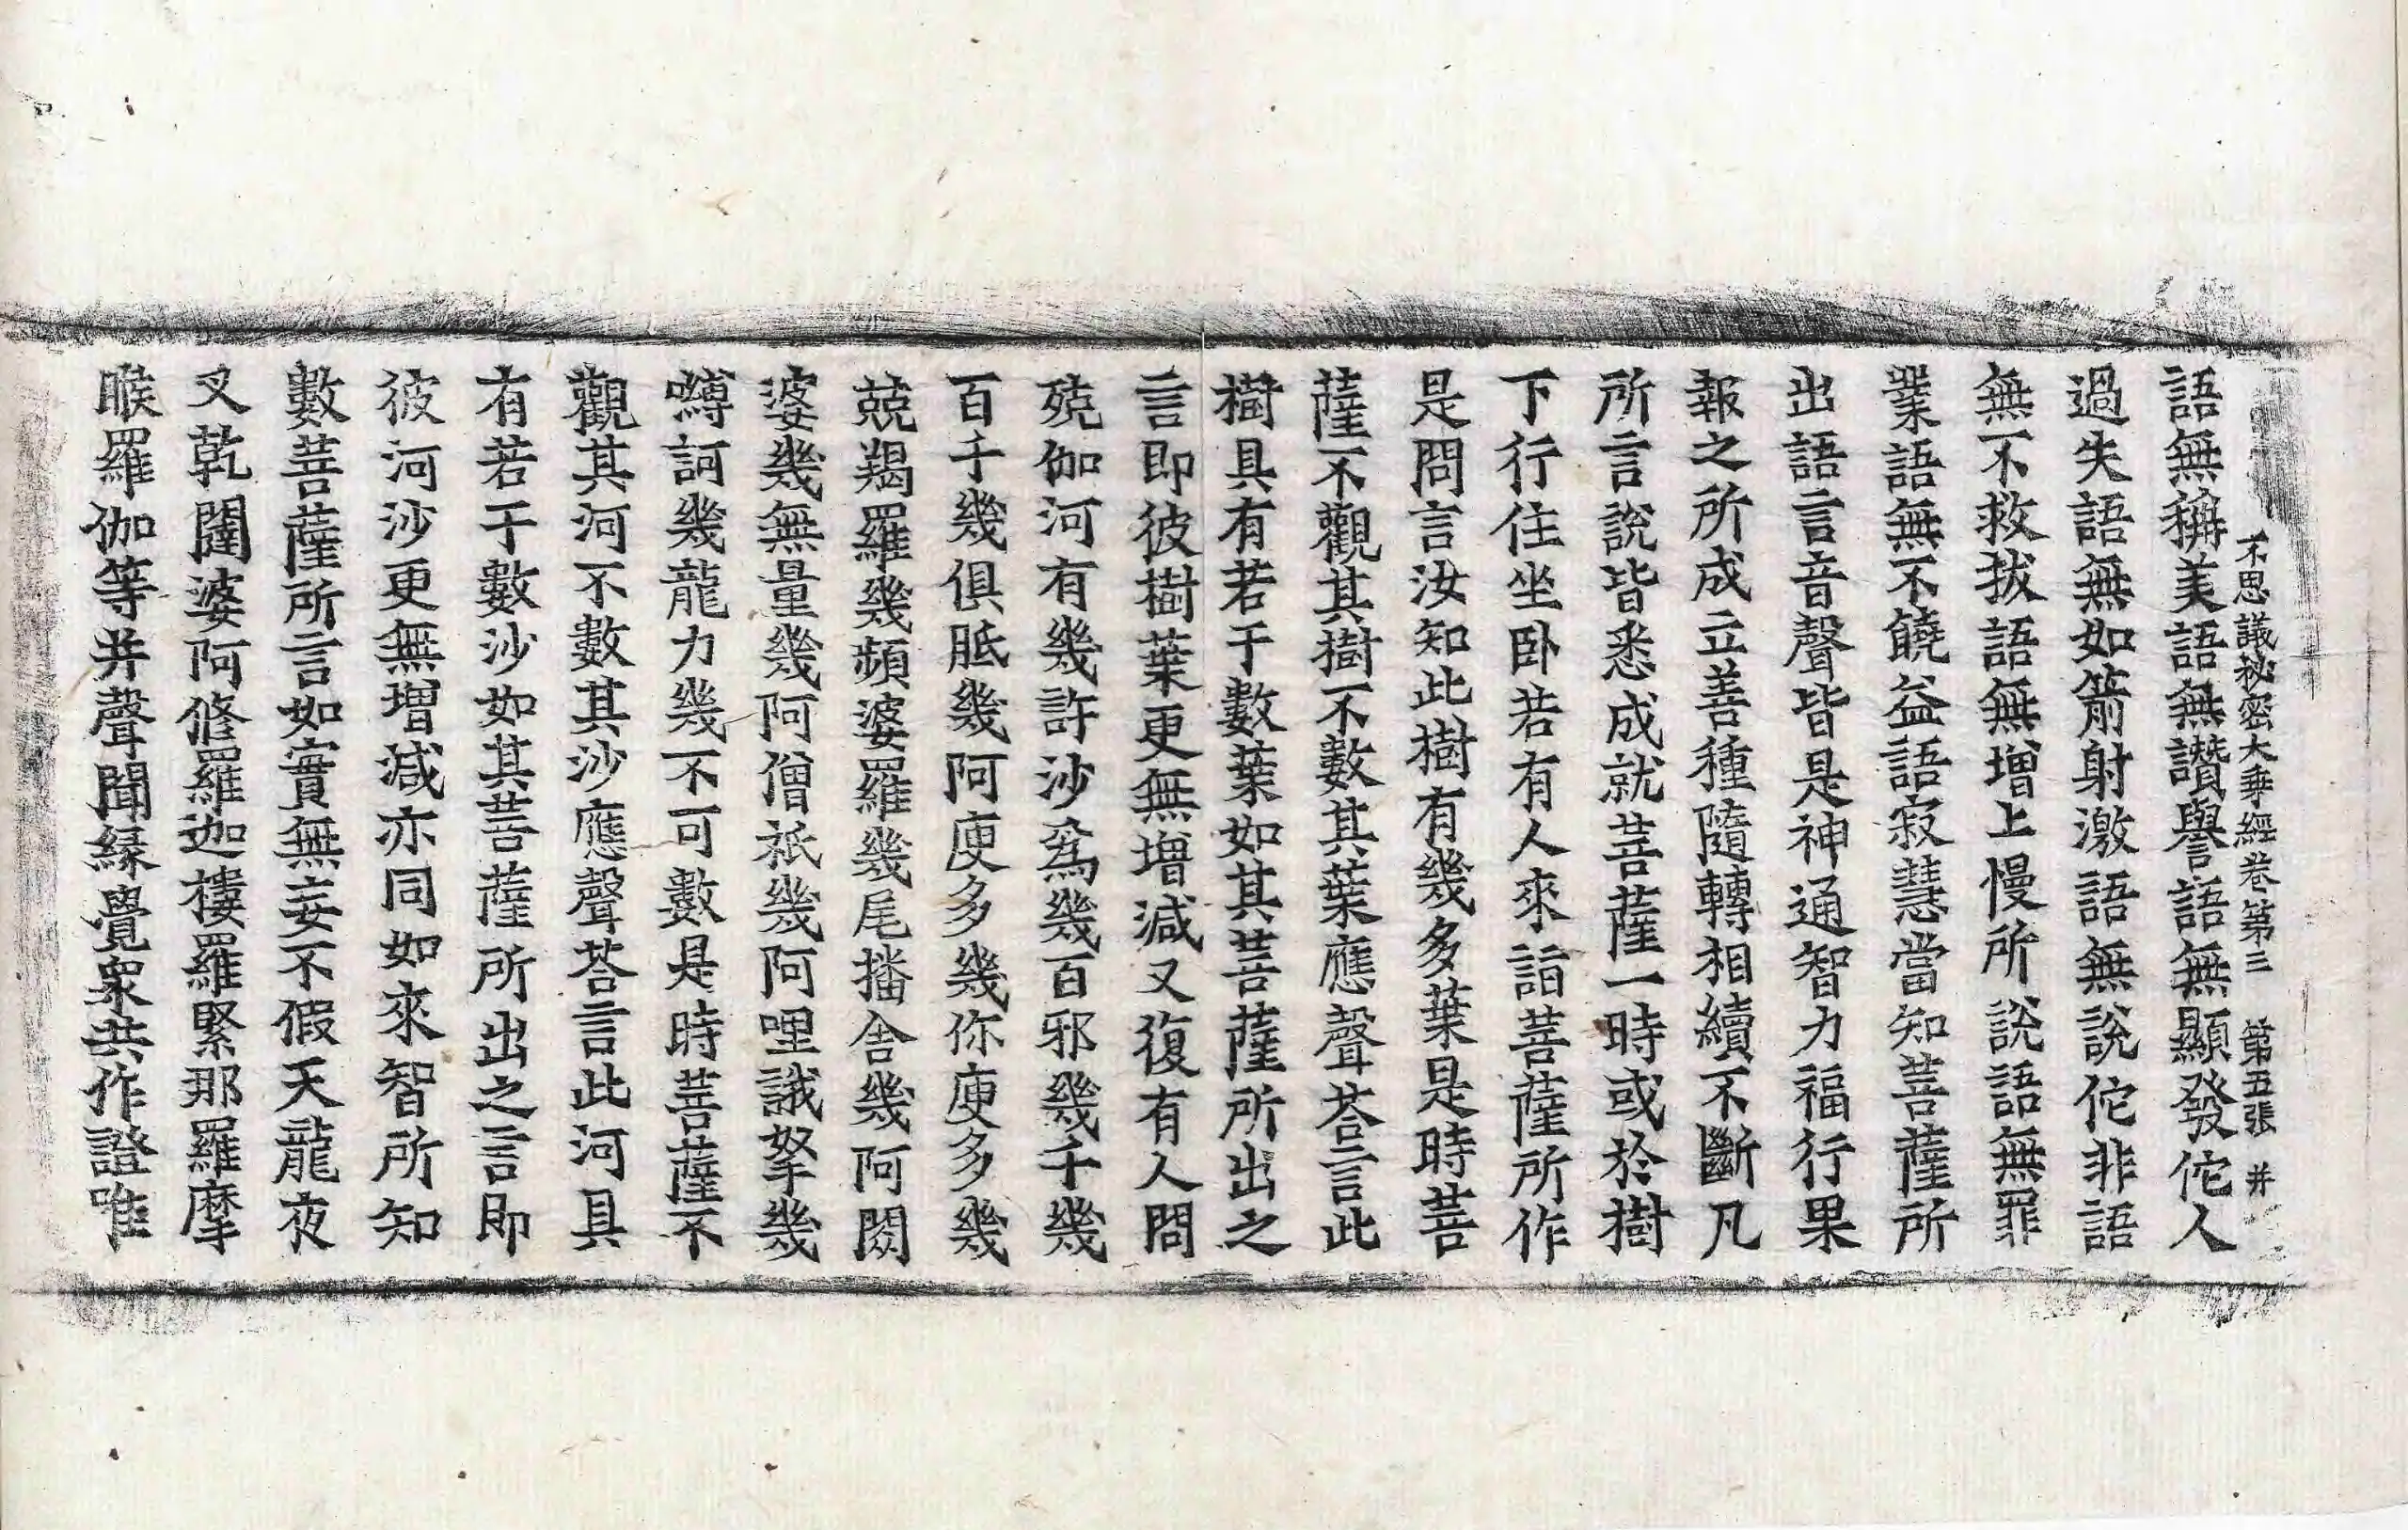 不思議秘密大乗經卷第三 第五張 井
語無稱美語無讚譽語無顯發佗人
過失語無如箭射激語無說佗非語
無不救拔語無增上慢所說語無罪
業語無不饒益語寂慧當知菩薩所
出語言音聲皆是神通智力福行果
報之所成立善種隨轉相續不斷凡
所言說皆悉成就菩薩一時或於樹
下行住坐卧若有人來詣菩薩所作
是問言汝知此樹有幾多葉是時菩
薩不觀其樹不數其葉應聲荅言此
樹具有若干數葉如其菩薩所出之
言即彼樹葉更無增減又復有人問
殑伽河有幾許沙爲幾百邪幾千幾
百千幾俱胝幾阿庾多幾你庾多幾
兢羯羅幾頻婆羅幾尾播舍幾阿閦
婆幾無量幾阿僧祇幾阿哩誐拏幾
嚩訶幾龍力幾不可數是時菩薩不
觀其河不數其沙應聲荅言此河具
有若干數沙如其菩薩所出之言即
彼河沙更無增減亦同如來智所知
數菩薩所言如實無妄不假天龍夜
叉乾闥婆阿修羅迦樓羅緊那羅摩
睺羅伽等并聲聞緣覺衆共作證唯